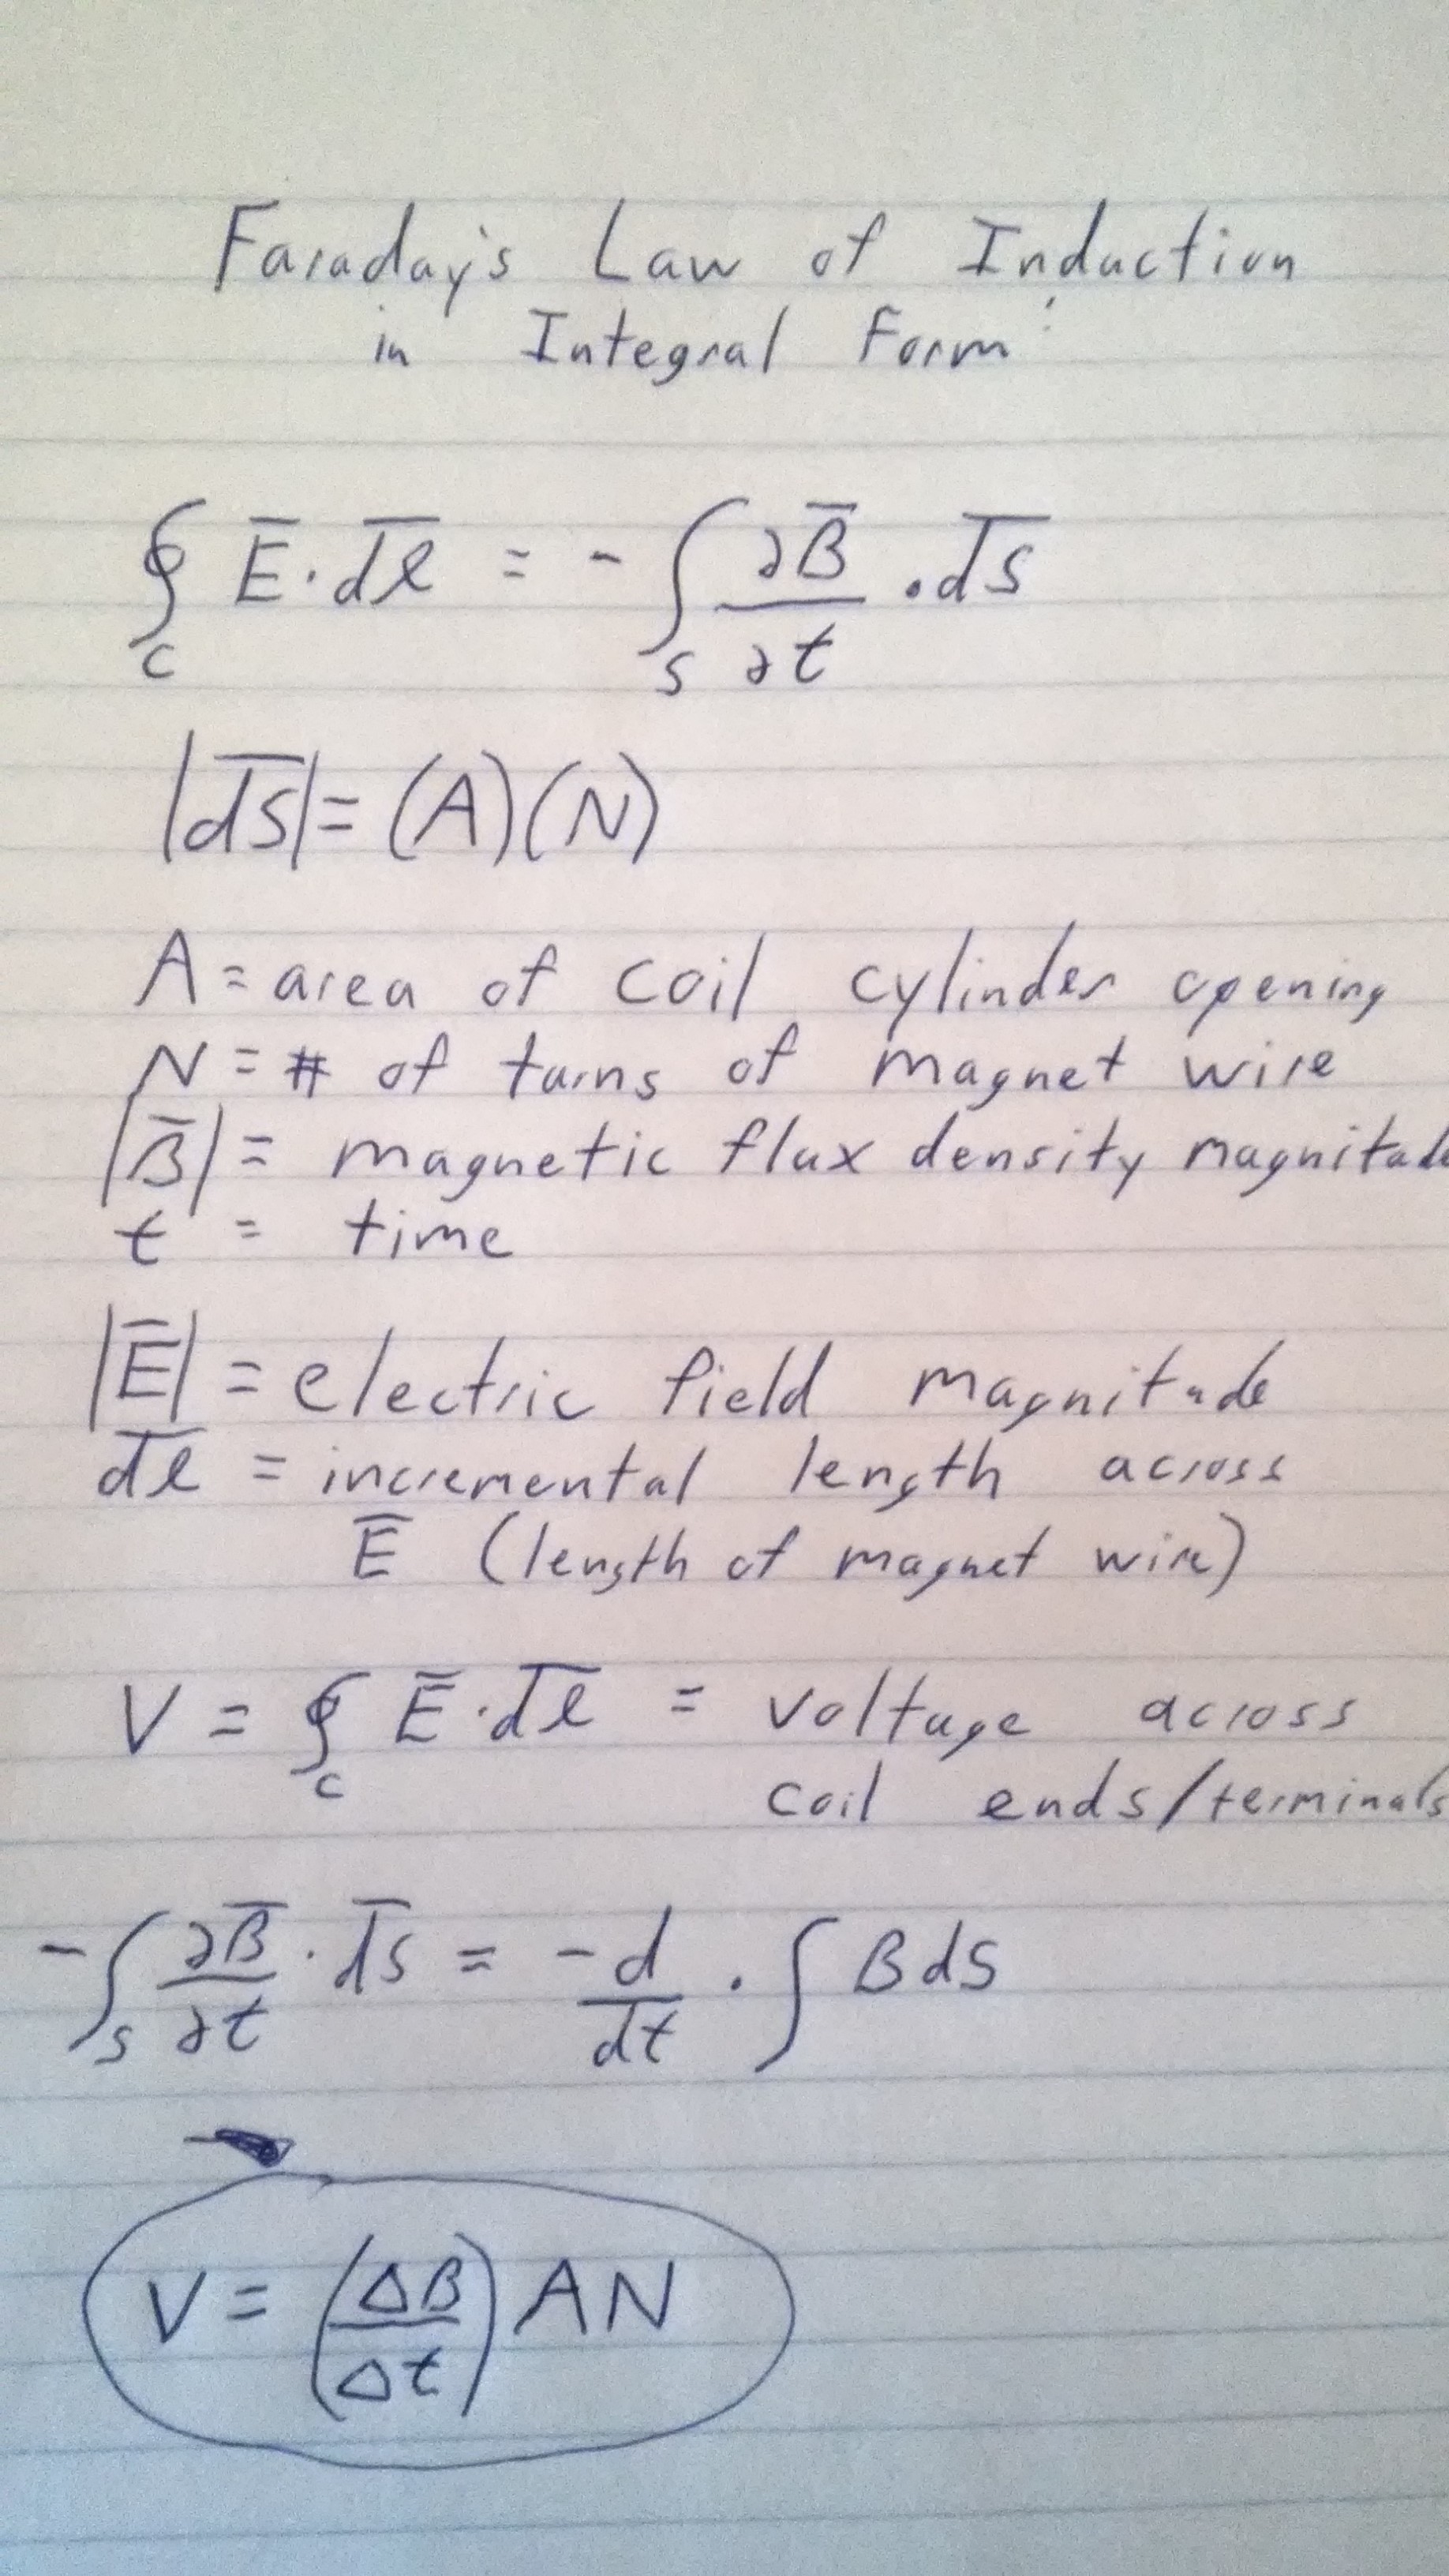 Faraday's Law of Induction
in Integral Form:
∮_C E̅·d̅l̅ = -∫_S ∂B̅/∂t · d̅s̅
|d̅s̅| = (A)(N)
A = area of coil cylinder opening
N = # of turns of magnet wire
|B̅| = magnetic flux density magnitud
t = time
|E̅| = electric field magnitude
d̅l̅ = incremental length across
E̅ (length of magnet wire)
V = ∮_C E̅·d̅l̅ = voltage across
coil ends/terminals
-∫_S ∂B̅/∂t · d̅s̅ = -d/dt · ∫ B ds
V = (ΔB/Δt) AN